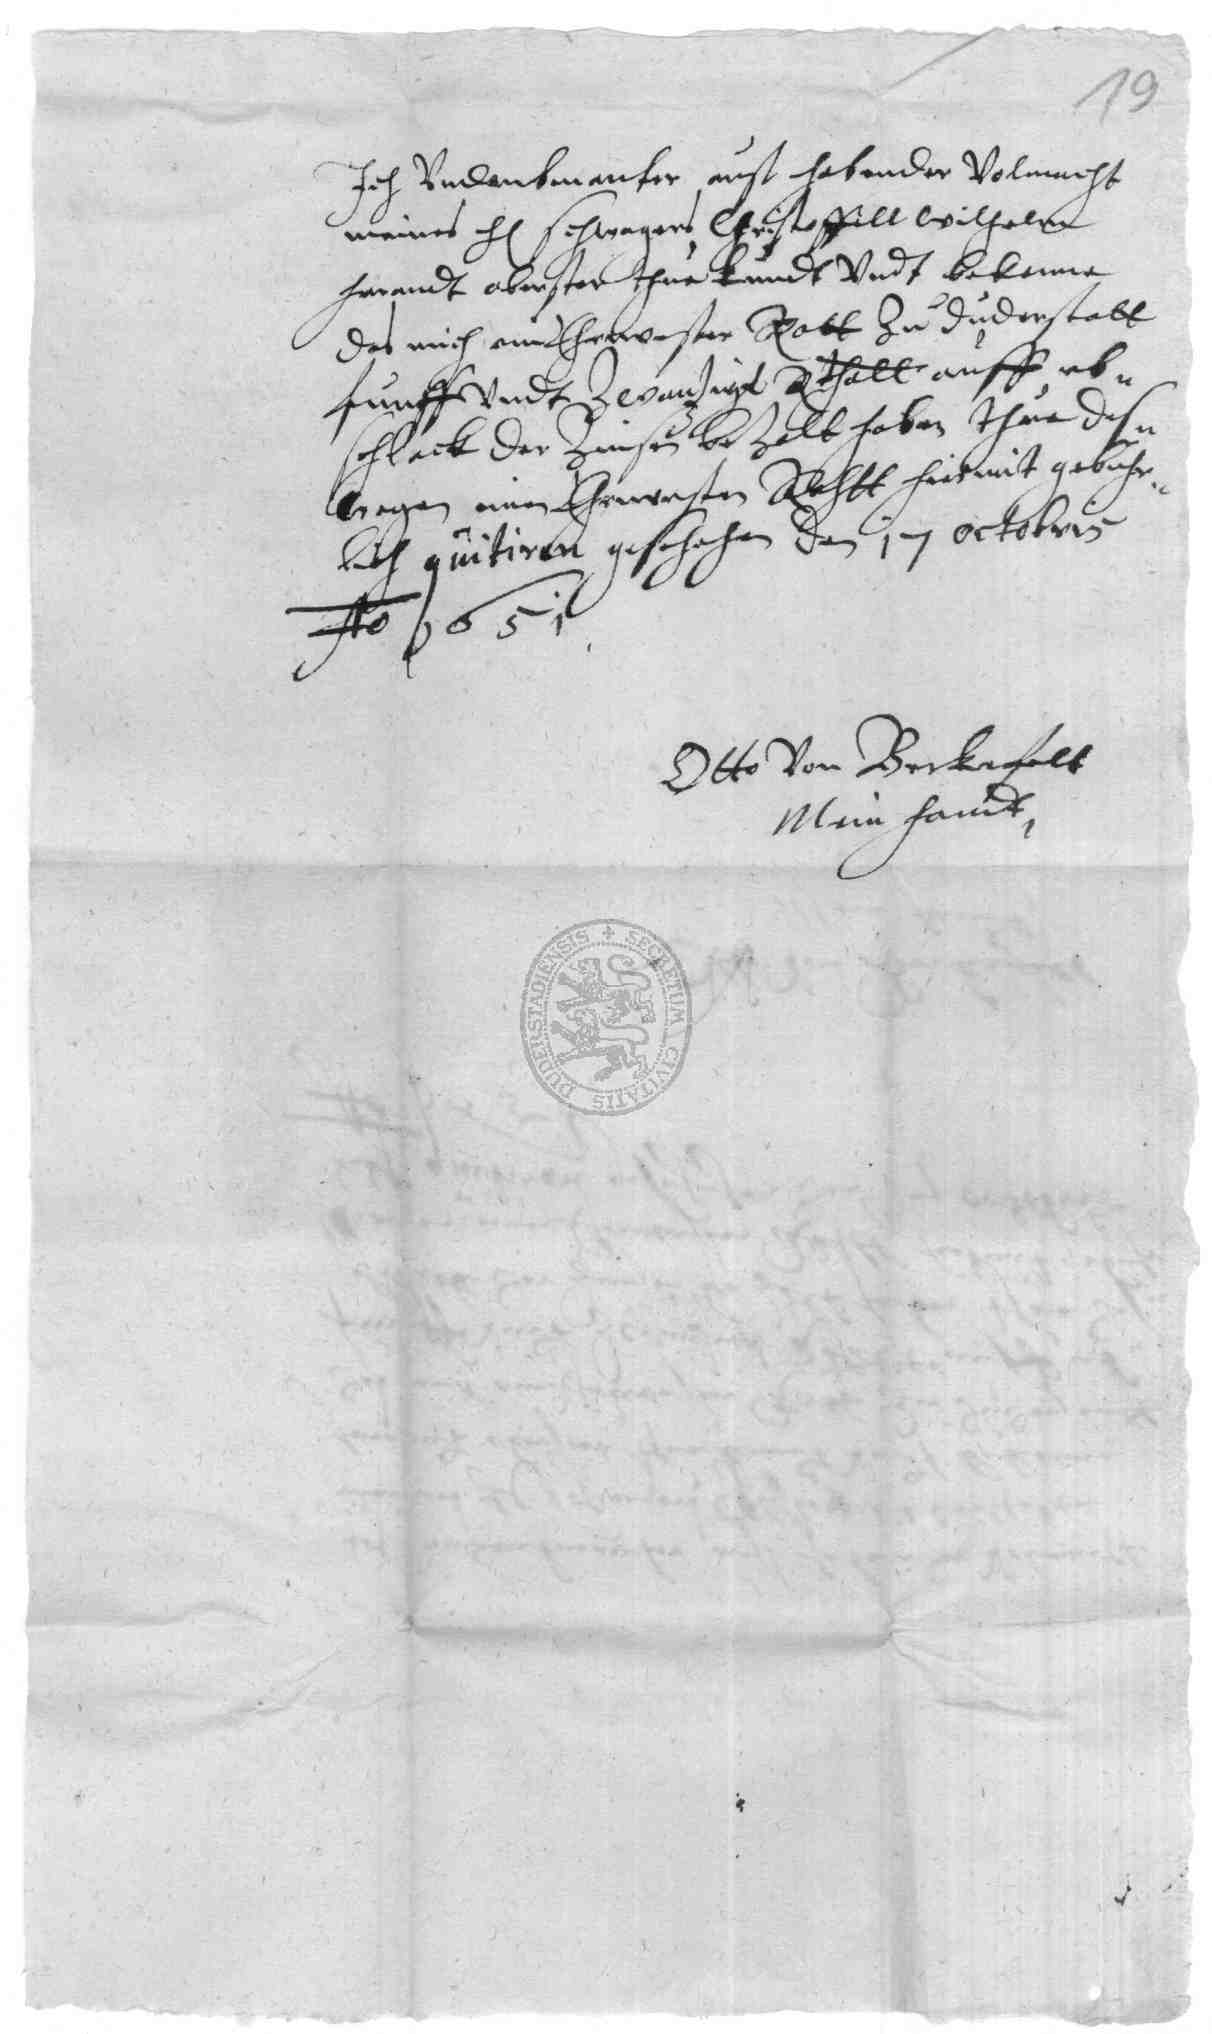 19
Ich Undenbenanter aust habender Volmacht
meines H schwagers Christoffell Wilhelm
oberster thue kundt Undt bekenne
das mich ein Ehrnvester Ratt Zu duderstatt
funff Undt Zwanzigk Rthall auff ab-
schlack der Zinsen beZalt haben thue des-
wegen einen Ehrnvesten Rahtt hiermit gebuhr-
lich quitiren geschehen den 17 octobris
Ao 1651
Otto Von Berckefelt
Mein handt
SECRETUM CIVITATIS DUDERSTADIENSIS